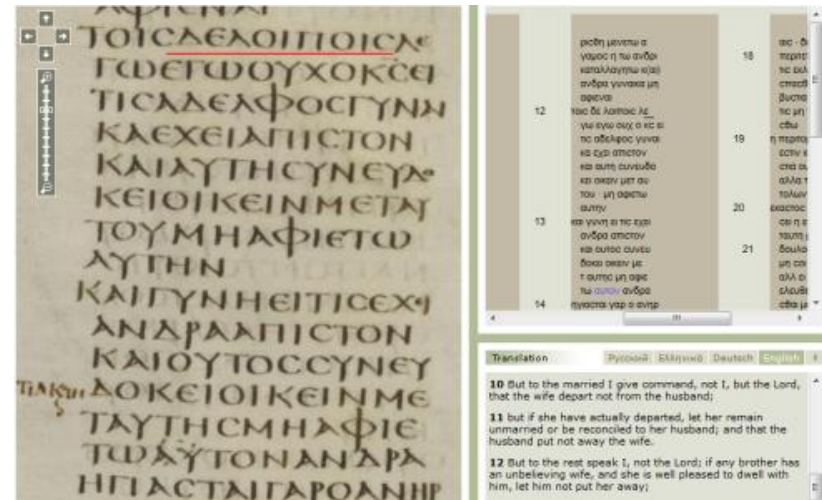 ΤΟΙΣΔΕΛΟΙΠΟΙΣΛΕ
ΓΩΕΓΩΟΥΧΟΚΣΕΙ
ΤΙΣΑΔΕΛΦΟΣΓΥΝΑΙ
ΚΑΕΧΕΙΑΠΙΣΤΟΝ
ΚΑΙΑΥΤΗΣΥΝΕΥΔΟ
ΚΕΙΟΙΚΕΙΝΜΕΤΑΥ
ΤΟΥΜΗΑΦΙΕΤΩ
ΑΥΤΗΝ
ΚΑΙΓΥΝΗΕΙΤΙΣΕΧΕΙ
ΑΝΔΡΑΑΠΙΣΤΟΝ
ΚΑΙΟΥΤΟΣΣΥΝΕΥ
ΔΟΚΕΙΟΙΚΕΙΝΜΕ
ΤΑΥΤΗΣΜΗΑΦΙΕ
ΤΩΑΥΤΟΝΑΝΔΡΑ
ΗΓΙΑΣΤΑΙΓΑΡΟΑΝΗΡ
ρισθη μενετω α
γαμος η τω ανδρι
καταλλαγητω κ(αι)
ανδρα γυναικα μη
αφιεναι
12 τοις δε λοιποις λε
γω εγω ουχ ο κς ει
τις αδελφος γυναι
κα εχει απιστον
και αυτη συνευδο
κει οικειν μετ αυ
του · μη αφιετω
αυτην
13 και γυνη ει τις εχει
ανδρα απιστον
και ουτος συνευ
δοκει οικειν με
τ αυτης μη αφιε
τω αυτον ανδρα
14 ηγιασται γαρ ο ανηρ
18
19
20
21
Translation Русский Ελληνικά Deutsch English
10 But to the married I give command, not I, but the Lord,
that the wife depart not from the husband;
11 but if she have actually departed, let her remain
unmarried or be reconciled to her husband; and that the
husband put not away the wife.
12 But to the rest speak I, not the Lord; if any brother has
an unbelieving wife, and she is well pleased to dwell with
him, let him not put her away;